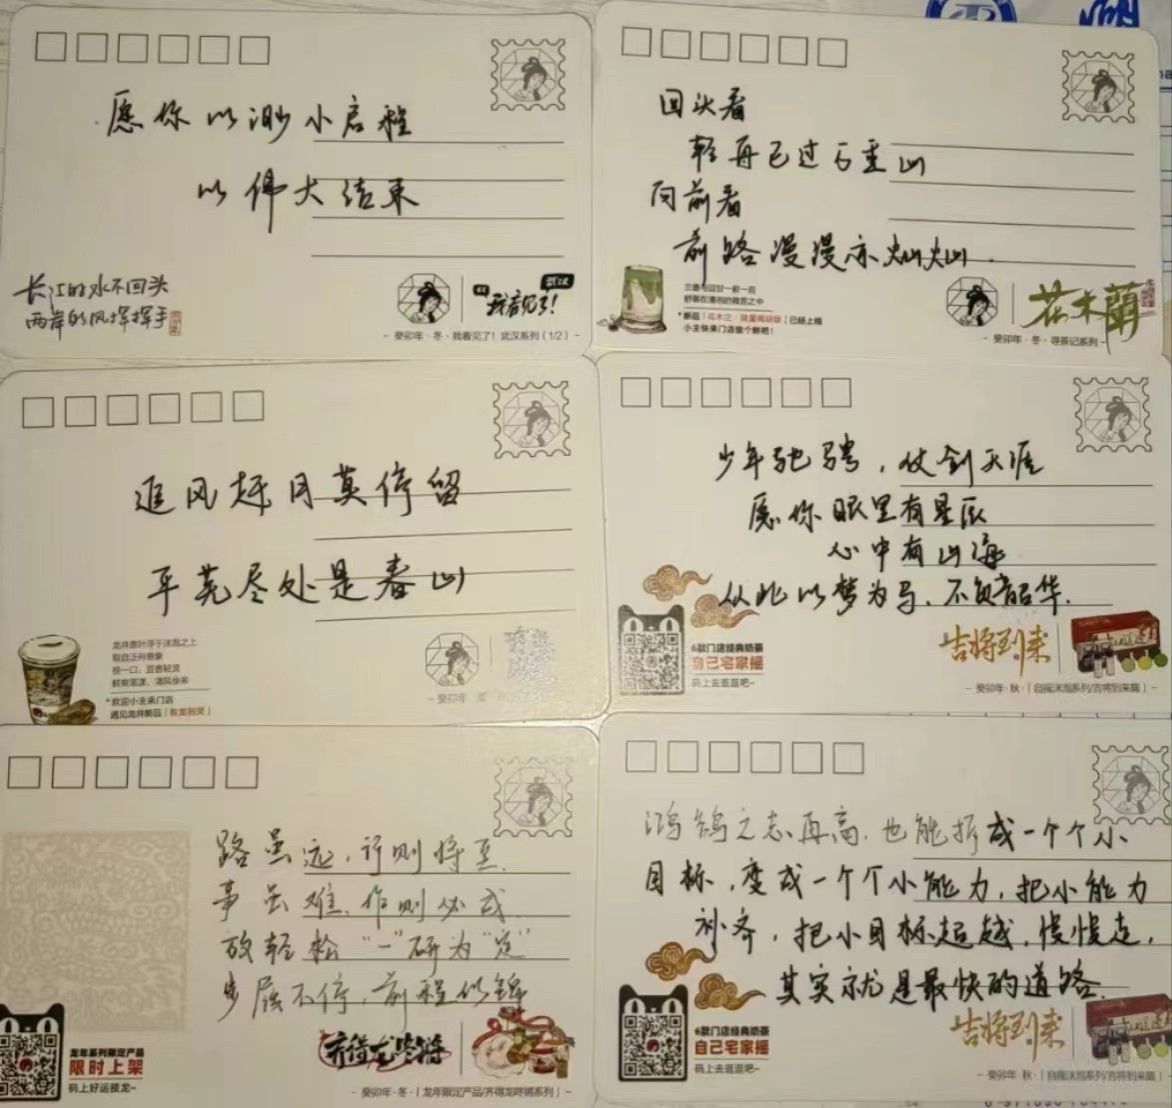 愿你以渺小启程
以伟大结束
长江的水不回头
两岸的风挥挥手
我看见了!
武汉
- 癸卯年·冬·我看见了! 武汉系列 (1/2) -
回头看
轻舟已过万重山
向前看
前路漫漫亦灿灿.
小主快来门店尝个鲜吧!
花木蘭
- 癸卯年·冬·寻茶记系列 -
追风赶月莫停留
平芜尽处是春山
取自正月意象
*欢迎小主来门店
遇见龙井新品
少年驰骋,仗剑天涯
愿你眼里有星辰
心中有山海
从此以梦为马,不负韶华.
6款门店经典奶茶
自己宅家摇
码上去逛逛吧~
吉将到来
- 癸卯年·秋·「自摇沫泡系列/吉将到来篇」-
路虽远,行则将至.
事虽难,作则必成.
放轻松 “一”研为“定”
步履不停,前程似锦
龙年系列限定产品
限时上架
码上好运接龙~
- 癸卯年·冬·「龙年限定产品/齐得龙咚锵系列」-
鸿鹄之志再高,也能拆成一个个小
目标,变成一个个小能力,把小能力
补齐,把小目标超越,慢慢走,
其实就是最快的道路.
6款门店经典奶茶
自己宅家摇
码上去逛逛吧~
吉将到来
- 癸卯年·秋·「自摇沫泡系列/吉将到来篇」